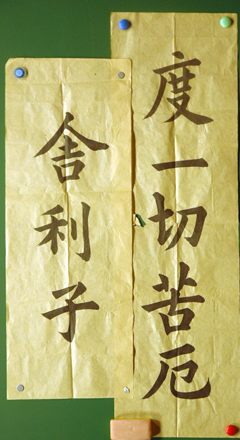 度一切苦厄
舎利子